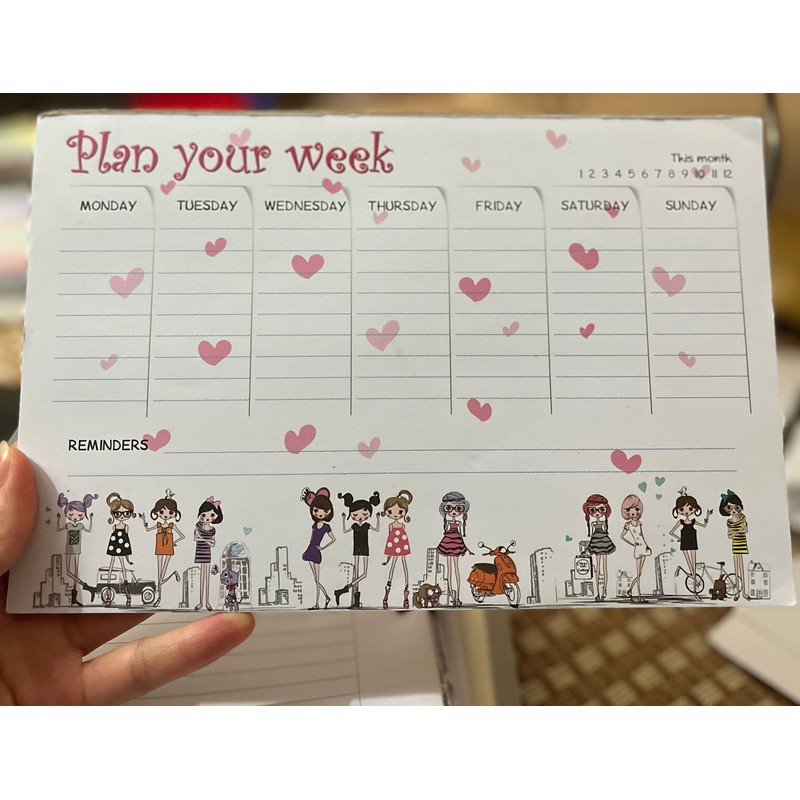 Plan your week
This month
1 2 3 4 5 6 7 8 9 10 11 12
MONDAY TUESDAY WEDNESDAY THURSDAY FRIDAY SATURDAY SUNDAY
REMINDERS